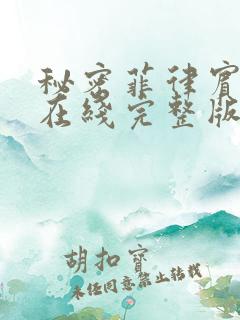 秘密菲律宾
在线完整版
胡扣寶
未经同意禁止转载